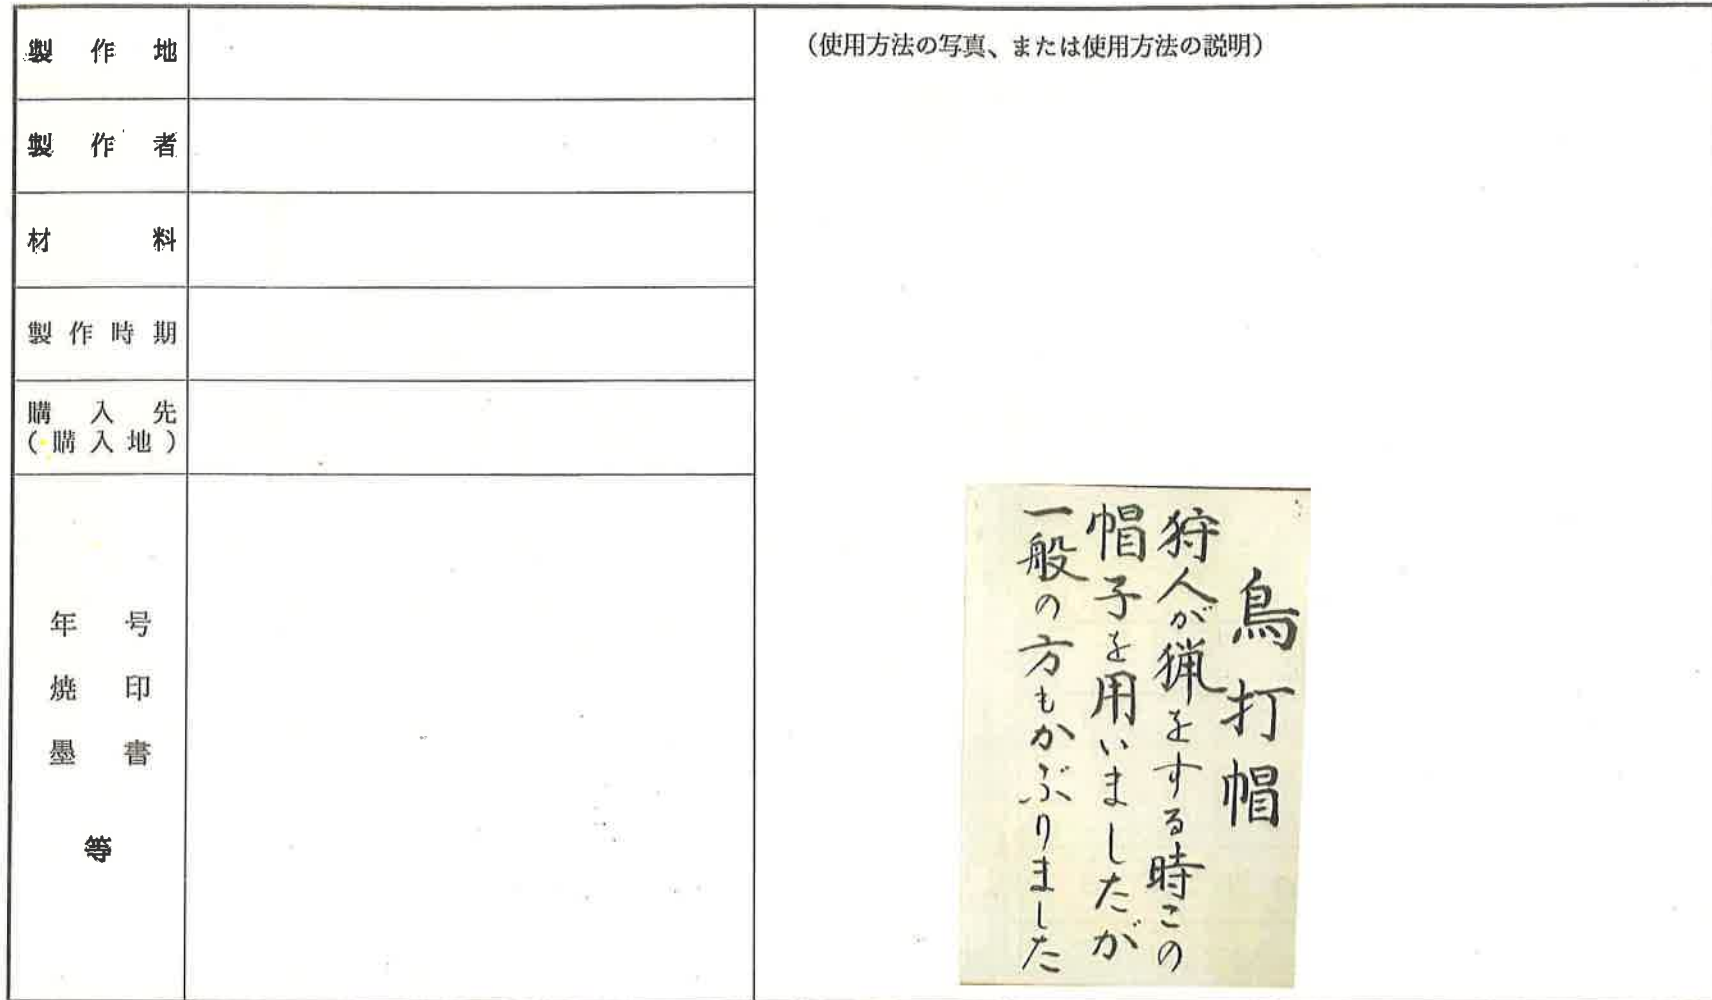 製作地
製作者
材料
製作時期
購入先
(購入地)
年号
焼印
墨書
等
(使用方法の写真、または使用方法の説明)
鳥打帽
狩人が猟をする時この
帽子を用いましたが
一般の方もかぶりました